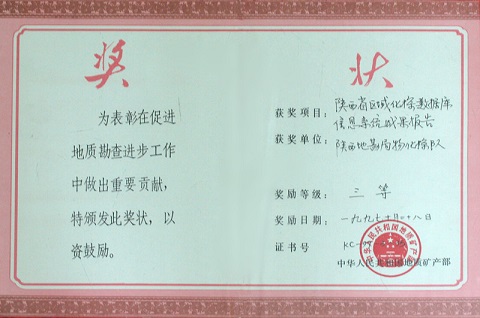 奖状
为表彰在促进
地质勘查进步工作
中做出重要贡献，
特颁发此奖状，以
资鼓励。
获奖项目：陕西省区域化探数据库
信息系统成果报告
获奖单位：陕西地勘局物化探队
奖励等级：三等
奖励日期：一九九七十月二十八日
证书号 KC
中华人民共和国地质矿产部
中华人民共和国地质矿产部